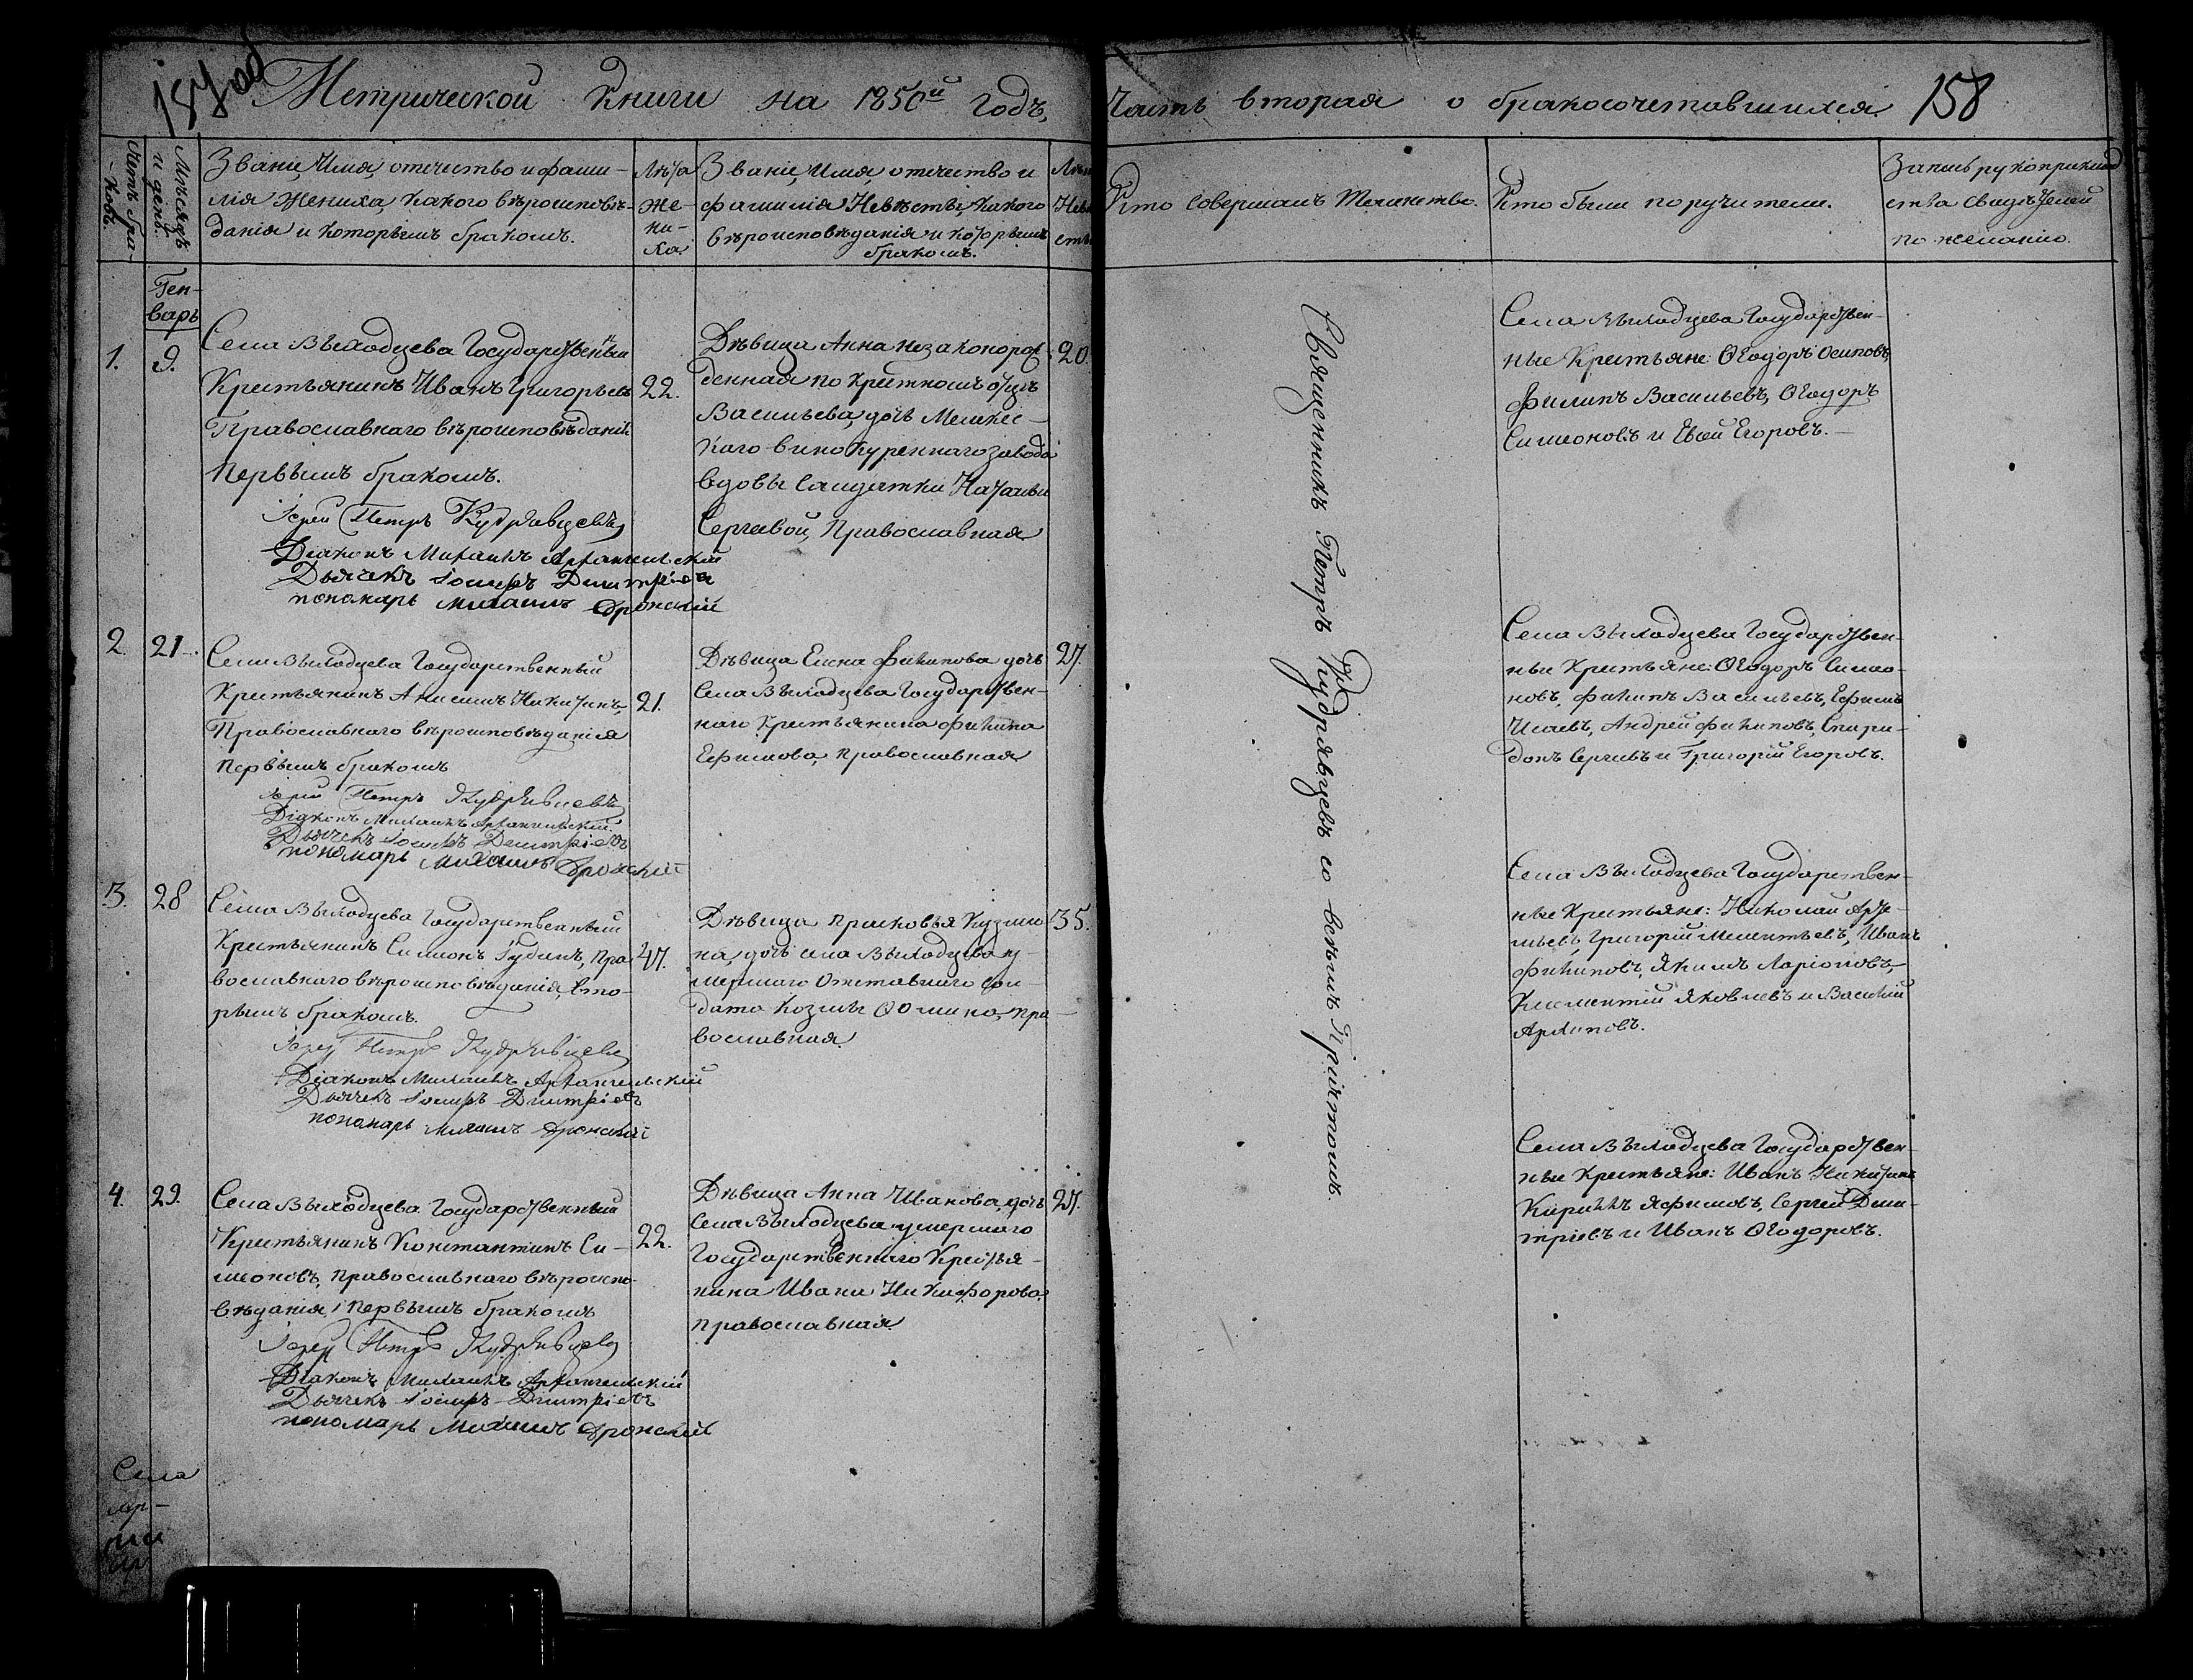 Метрической Книги на 1850й годъ,
Часть вторая о бракосочетавшихся
158
Мѣсяцъ и день.
Званіе, Имя, отечество и фами-
лія Жениха, какого вѣроисповѣ-
данія и которымъ бракомъ.
Лѣта
Же-
ни-
ха.
Званіе, Имя, отечество и
фамилія Невѣсты, какого
вѣроисповѣданія и которымъ
бракомъ.
Кто совершалъ Таинство.
Кто были поручители.
Запись рукоприклад
ства свидѣтелей
по желанію.
Ген-
варь
1.
9.
Села Выходцева Государственный
Крестьянинъ Иванъ Григорьевъ
Православнаго вѣроисповѣданія
первымъ бракомъ.
Іерей Петръ Кудрявцевъ
Діаконъ Михаилъ Архангельскій
Дьячекъ Іосифъ Димитріевъ
пономарь Михаилъ
22.
Дѣвица Анна незаконорож
денная по крестномъ отцѣ
Васильева, дочь Мелекес-
каго винокуреннаго завода
вдовы солдатки Натальи
Сергѣевой, Православная
20.
Села Выходцева Государствен-
ные Крестьяне: Ѳеодоръ Осиповъ,
Филипъ Васильевъ, Ѳеодоръ
Симеоновъ и Егоровъ.
Священникъ Петръ Кудрявцевъ со всѣмъ Причтомъ.
2.
21.
Села Выходцева Государственный
Крестьянинъ Анисимъ Никитинъ,
Православнаго вѣроисповѣданія
первымъ бракомъ
Іерей Петръ Кудрявцевъ
Діаконъ Михаилъ Архангельскій
Дьячекъ Іосифъ Димитріевъ
пономарь Михаилъ
21.
Дѣвица Елена Филипова дочь
Села Выходцева Государствен-
наго Крестьянина Филипа
Ефимова, православная
27.
Села Выходцева Государствен-
ные Крестьяне: Ѳеодоръ Симео-
новъ, Филипъ Васильевъ, Ефимъ
Исаевъ, Андрей Филиповъ, Спири-
донъ Сергѣевъ и Григорій Егоровъ.
3.
28
Села Выходцева Государственный
Крестьянинъ Симионъ Гудинъ, Пра
вославнаго вѣроисповѣданія, вто-
рымъ бракомъ.
Іерей Петръ Кудрявцевъ
Діаконъ Михаилъ Архангельскій
Дьячекъ Іосифъ Димитріевъ
пономарь Михаилъ
47.
Дѣвица Прасковья Кузми
на, дочь села Выходцева у-
мершаго Отставнаго сол-
дата Козмы Ѳомина, пра-
вославная.
35.
Села Выходцева Государствен-
ные Крестьяне: Николай Арте-
мьевъ, Григорій Мелентьевъ, Иванъ
Филиповъ, Якимъ Ларіоновъ,
Климентій Яковлевъ и Василій
Архиповъ.
4.
29.
Села Выходцева Государственный
Крестьянинъ Константинъ Си-
меоновъ, Православнаго вѣроиспо-
вѣданія, первымъ бракомъ
Іерей Петръ Кудрявцевъ
Діаконъ Михаилъ Архангельскій
Дьячекъ Іосифъ Димитріевъ
пономарь Михаилъ
22.
Дѣвица Анна Иванова, дочь
Села Выходцева умершаго
Государственнаго Крестья-
нина Ивана Никифорова,
православная.
27.
Села Выходцева Государствен-
ные Крестьяне: Иванъ Никитинъ
Кирилъ Яфимовъ, Сергѣй Дми-
тріевъ и Иванъ Ѳеодоровъ.
Села